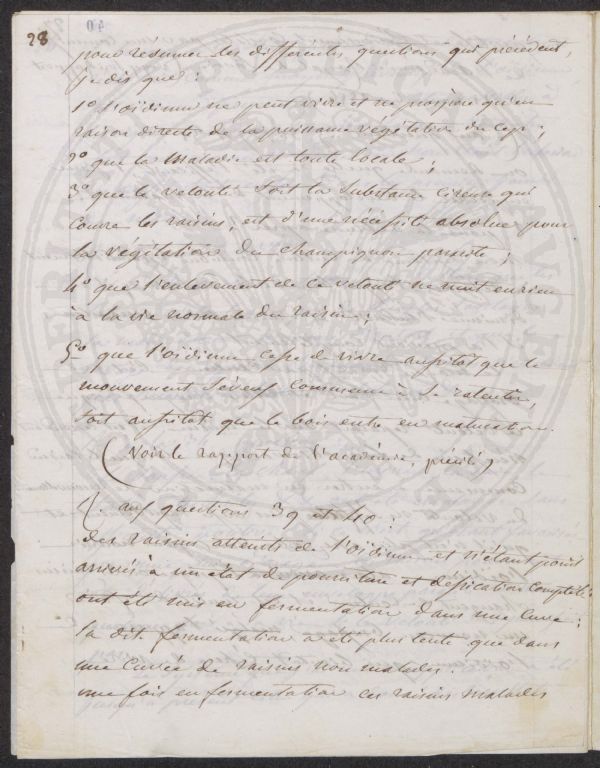 28
pour résumer les différentes questions qui précèdent,
je dis que :
1° l'oïdium ne peut vivre et ne prospère qu'en
raison directe de la puissante végétation du cep ;
2° que la maladie est toute locale ;
3° que le velouté soit la substance cireuse qui
couvre les raisins, est d'une nécessité absolue pour
la végétation du champignon parasite ;
4° que l'enlèvement de ce velouté ne nuit en rien
à la vie normale du raisin ;
5° que l'oïdium cesse de vivre aussitôt que le
mouvement séveux commence à se ralentir,
soit aussitôt que le bois entre en maturation.
(Voir le rapport de l'académie, précité)
aux questions 39 et 40 :
des raisins atteints de l'oïdium et n'étant point
arrivés à un état de pourriture et déssication complète
ont été mis en fermentation dans une cuve ;
la dit. fermentation a été plus lente que dans
une cuvée de raisins non malades.
une fois en fermentation ces raisins malades